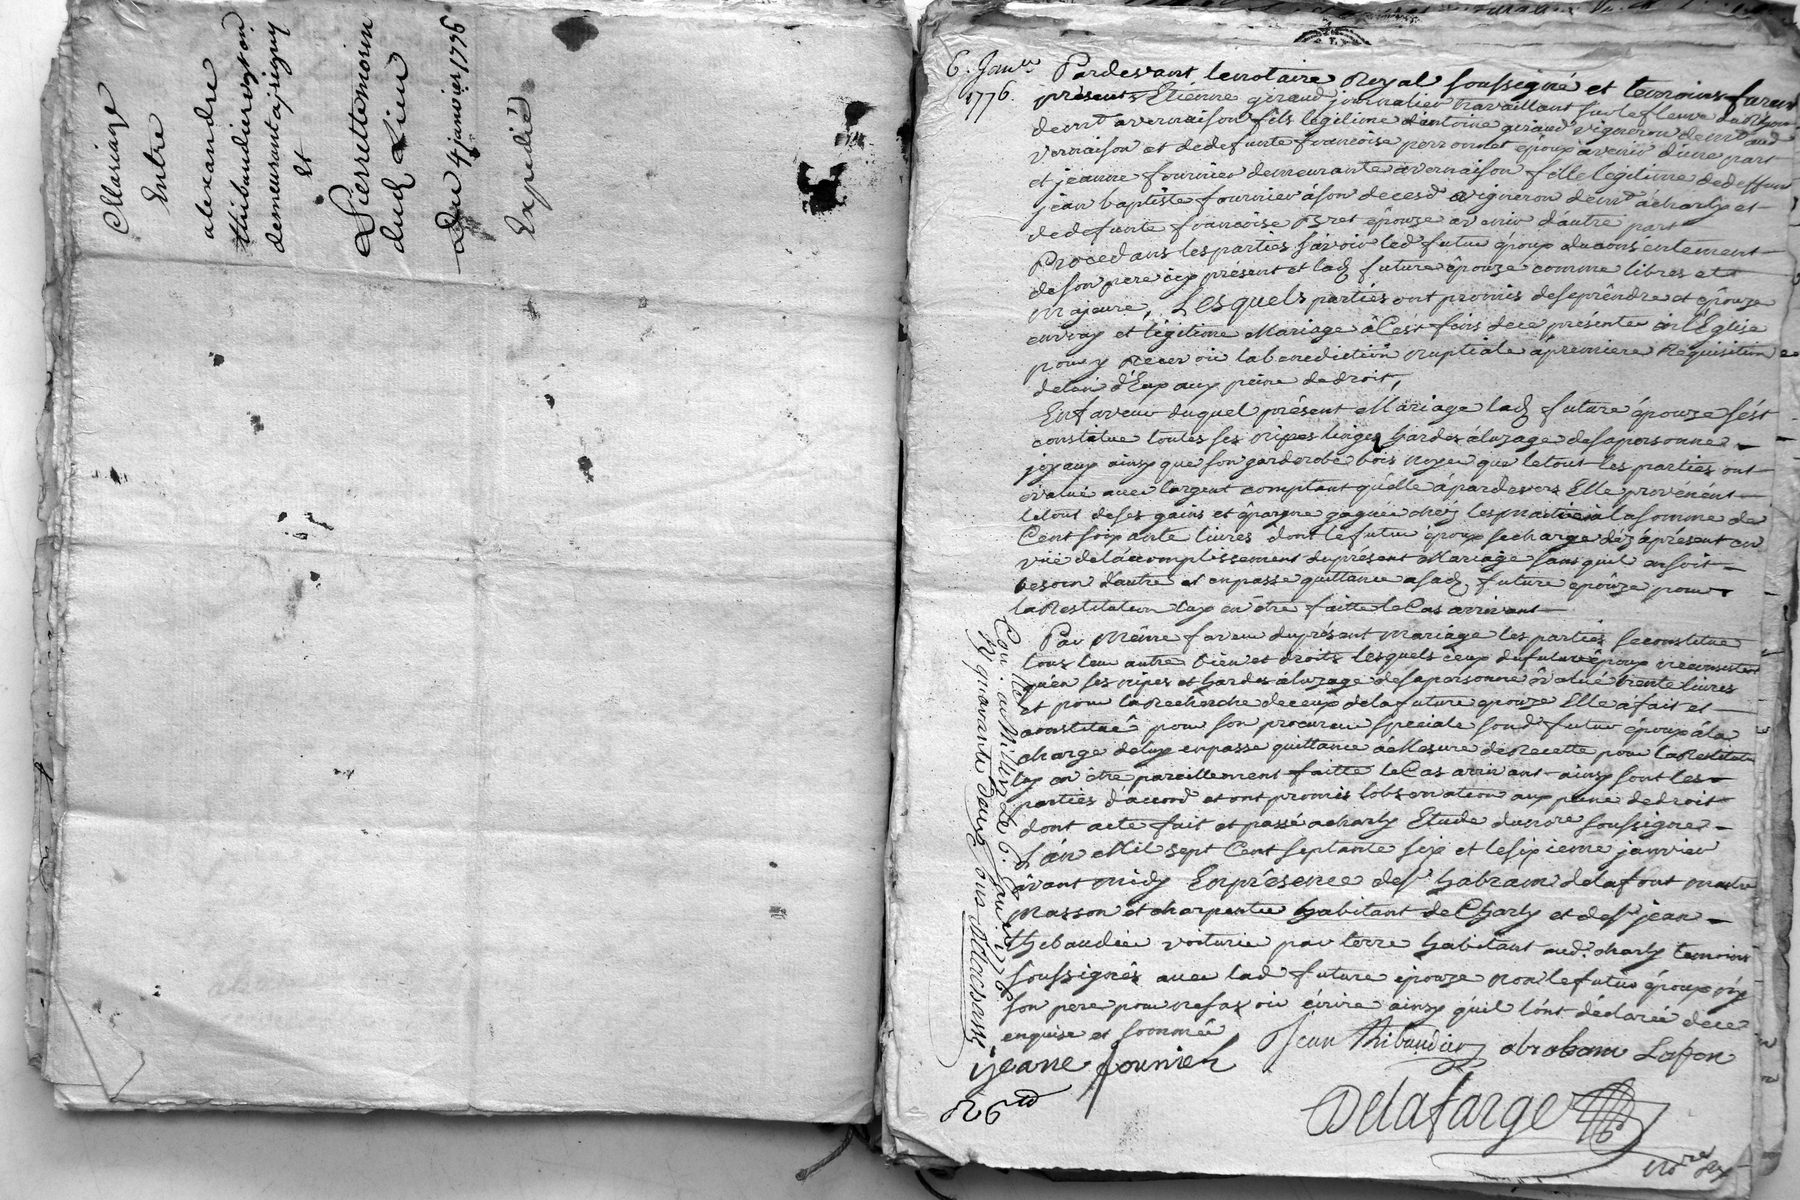 Mariage
Entre
alexandre
thibaudier vgton
demeurant a jrigny
et
Pierrette moisin
dud. Lieu
Du 4 janvier 1776
Expedié
6. Janer
1776.
Pardevant le notaire Royal soussigné et temoins furent
présents Etienne giraud journalier travaillant sur le fleuve du Rhone
demt a vernaison fils legitime d'antoine giraud vigneron demt aud
vernaison et de defunte francoise perronnet epoux avenir d'une part
et jeanne fournier demeurante a vernaison fille legitime de deffunt
jean baptiste fournier a son deces vigneron demt a charly et
de defunte francoise epouze avenir d'autre part
Procedans les parties sçavoir led futur epoux du consentement
de son pere icy présent et lad. future épouze comme libre et
majeure, Lesquels parties ont promis de se prendre et épouze
en vray et légitime Mariage à l'Eglise
pour y recevoir la benediction nuptiale a premiere Requisition
de lun d'Eux aux peine de droit,
En faveur duquel présent Mariage lad. future épouze s'ést
constitue toutes ses nipes linges hardes à luzage de sa personne
joyaux ainsy que son garderobe bois noyer que le tout les parties ont
evalué avec largent comptant quelle à pardevers Elle provénént
le tout de ses gains et épargne gagnée chez les maitre à la somme de
Cent soixante livres dont le futur époux se charge déz apresent en
vüe de l'accomplissement du présent Mariage sans quil en soit
besoin d'autre et en passe quittance a sad. future epouze pour
la Restitution luy en être faitte le Cas arrivant
Par Même faveur du présent mariage les parties se constitue
tous leur autre bien et droits lesquels ceux du futur époux ne consistent
qu'en ses nipes et hardes à luzage de sa personne évalué trente livres
et pour la Recherche de ceux de la future epouze Elle a fait et
constitué pour son procureur speciale sond. futur époux à la
charge de luy en passe quittance à Mesure de Recette pour la Restitution
luy en être pareillement faitte le Cas arrivant ainsy sont les
parties d'accord et ont promis lobservation aux peine de droit
dont acte fait et passé a charly Etude du nore soussigné
L'an Mil sept Cent septante six et le sixieme janvier
avant midy En présence de sr habram delafont maitre
masson et charpentier habitant de Charly et de sr jean
thibaudier voiturier par terre habitant aud. charly temoins
soussignés avec lad. future épouze non le futur époux ny
son pere pour ne sçavoir écrire ainsy qu'il l'ont déclarée de ce
enquise et sommée
jeane fournier Jean Thibaudier abraham Lafon
Delafarge
nore
Con. a Millery Le 6. Janvier 1776